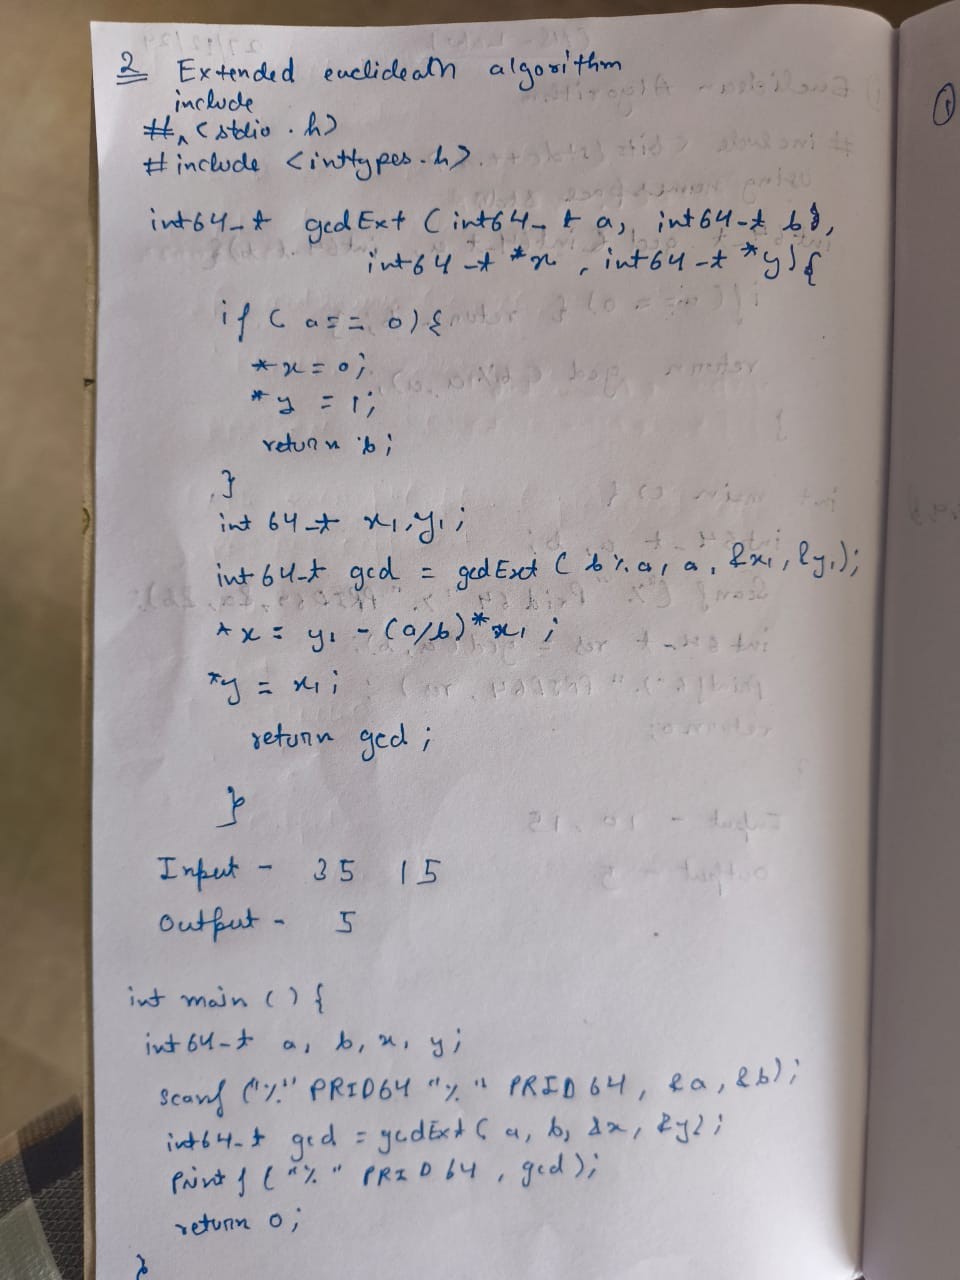 2 Extended euclideath algorithm
include
# ‸ <stdio.h>
#include <inttypes.h>
int64_t gcdExt (int64_t a, int64_t b,
int64_t *x, int64_t *y) {
if ( a == 0) {
*x = 0;
*y = 1;
return b;
}
int 64_t x1, y1;
int 64_t gcd = gcdExt ( b % a, a, &x1, &y1);
*x = y1 - (a/b) * x1;
*y = x1;
return gcd;
}
Input - 35 15
Output - 5
int main () {
int64_t a, b, x, y;
scanf ("%" PRID64 "%" PRID64, &a, &b);
int64_t gcd = gcdExt ( a, b, &x, &y);
Printf ("%" PRID64, gcd);
return 0;
}